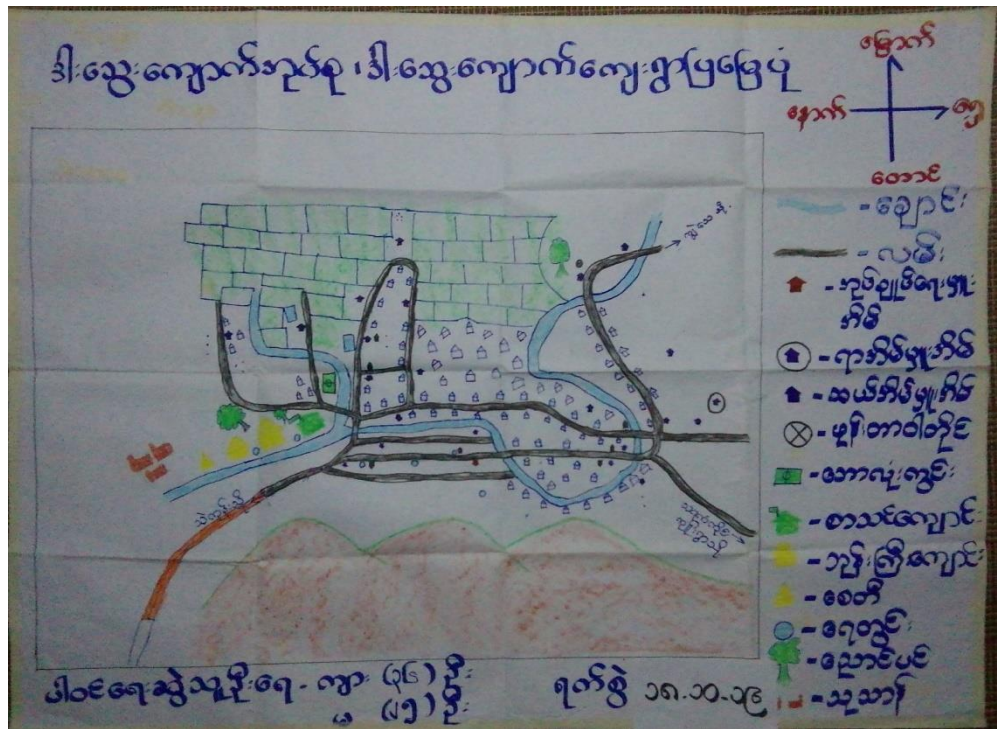 ဒါးသွေးကျောက်အုပ်စု၊ ဒါးသွေးကျောက်ကျေးရွာပြမြေပုံ
မြောက်
နောက်
ရှေ့
တောင်
- ချောင်း
- လမ်း
- အုပ်ချုပ်ရေးမှူး
အိမ်
- ရာအိမ်မှူးအိမ်
- ဆယ်အိမ်မှူးအိမ်
- ဖုန်းတာဝါတိုင်
- ဘောလုံးကွင်း
- စာသင်ကျောင်း
- ဘုန်းကြီးကျောင်း
- စေတီ
- ရေတွင်း
- ညောင်ပင်
- သုသာန်
ပါဝင်ရေးဆွဲသူဦးရေ - ကျား (၃၆) ဦး
မ (၂၅) ဦး
ရက်စွဲ ၁၈.၁၀.၁၉